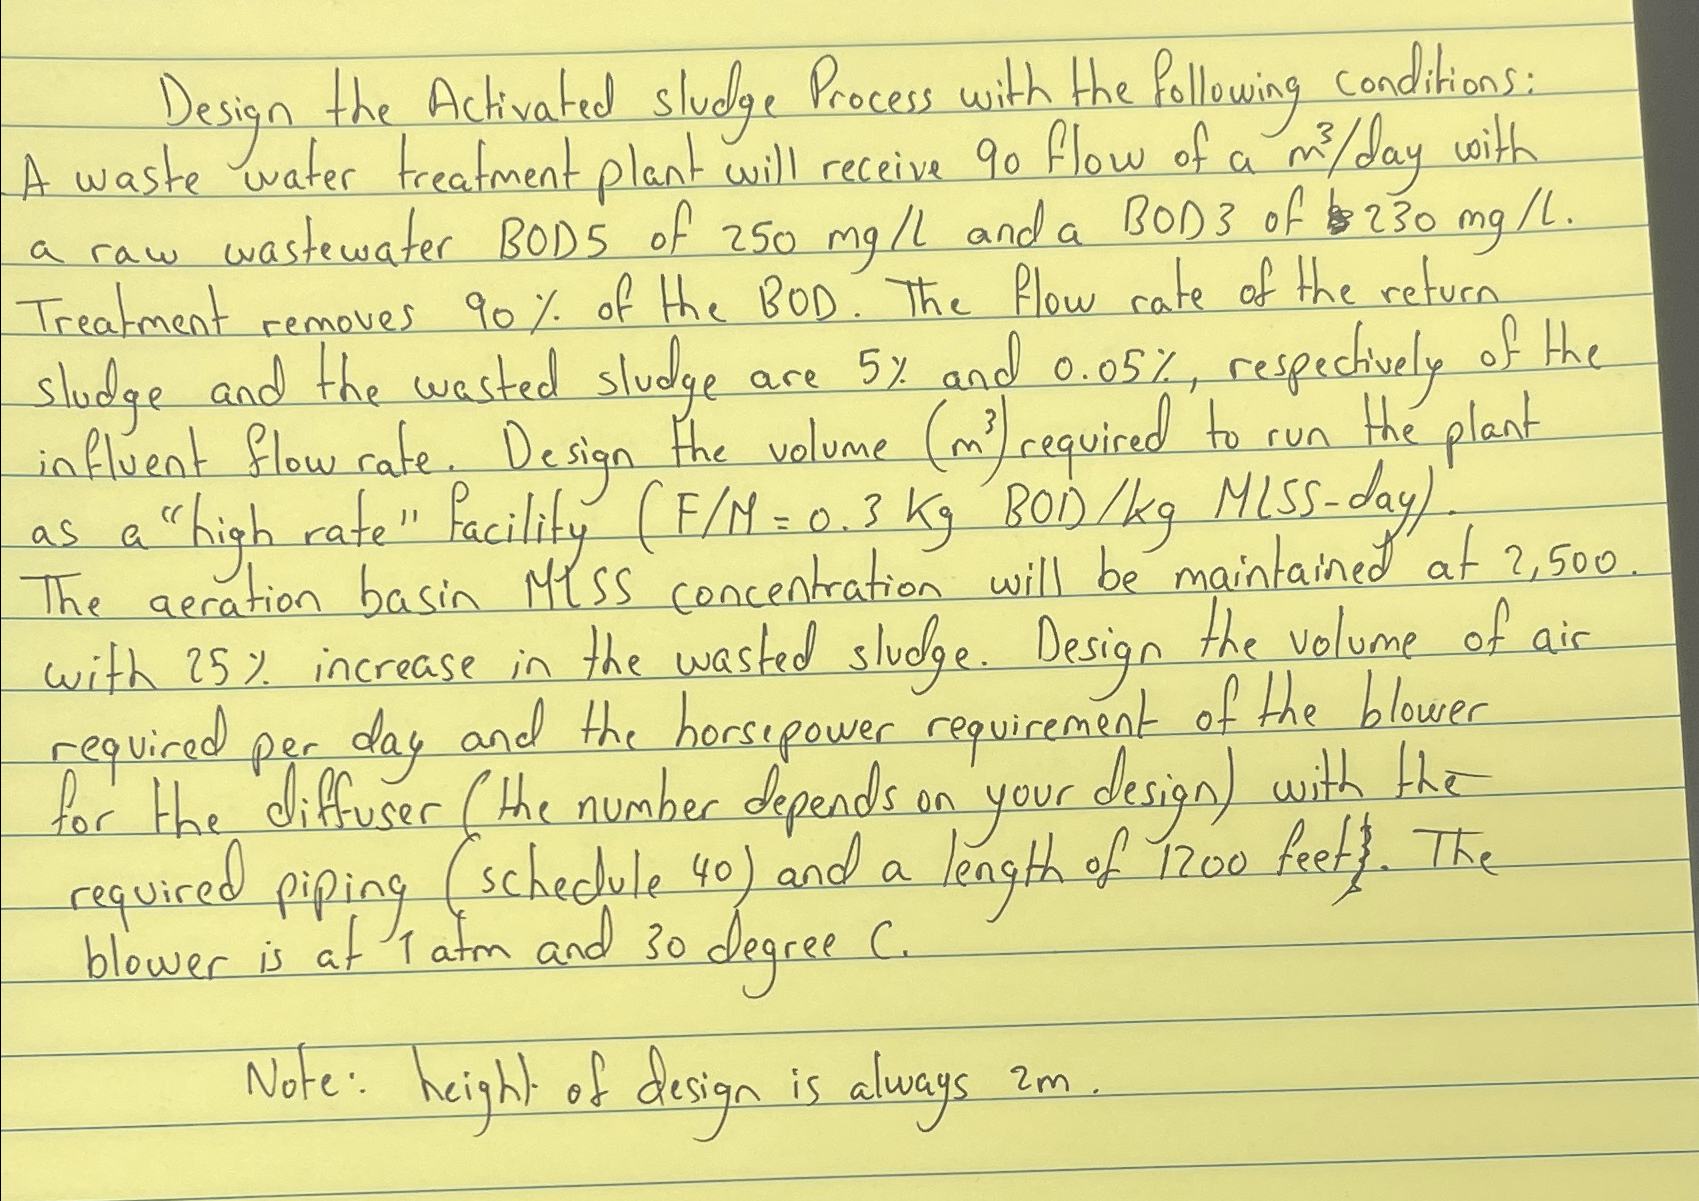 Design the Activated sludge Process with the following conditions:
A waste water treatment plant will receive 90 flow of a m³/day with
a raw wastewater BOD5 of 250 mg/l and a BOD3 of 230 mg/l.
Treatment removes 90% of the BOD. The flow rate of the return
sludge and the wasted sludge are 5% and 0.05%, respectively of the
influent flow rate. Design the volume (m³) required to run the plant
as a "high rate" facility (F/M = 0.3 Kg BOD/kg MLSS-day).
The aeration basin MLSS concentration will be maintained at 2,500.
with 25% increase in the wasted sludge. Design the volume of air
required per day and the horsepower requirement of the blower
for the diffuser (the number depends on your design) with the
required piping (schedule 40) and a length of 1200 feet. The
blower is at 1 atm and 30 degree C.
Note: height of design is always 2m.